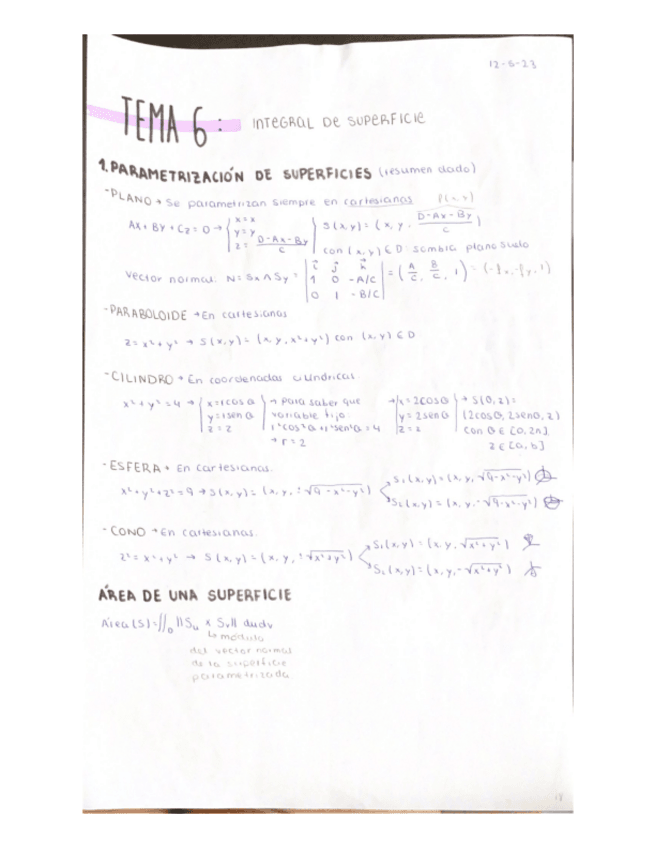 12-5-23
TEMA 6: INTEGRAL DE SUPERFICIE
1. PARAMETRIZACIÓN DE SUPERFICIES (resumen dado)
-PLANO → Se parametrizan siempre en cartesianas
Ax + By + Cz = D → { x = x, y = y, z = (D-Ax-By)/C } S(x,y) = (x, y, (D-Ax-By)/C)
con (x,y) ∈ D sombra plano suelo
Vector normal: N = Sx ∧ Sy = | i j k ; 1 0 -A/C ; 0 1 -B/C | = (A/C, B/C, 1) = (-fx, -fy, 1)
-PARABOLOIDE → En cartesianas
z = x²+y² → S(x,y) = (x, y, x²+y²) con (x,y) ∈ D
-CILINDRO → En coordenadas cilíndricas
x²+y² = 4 → { x = r cos θ, y = r sen θ, z = z } → para saber que variable fijo: r²cos²θ + r²sen²θ = 4 → r = 2 → { x = 2cosθ, y = 2senθ, z = z } → S(θ, z) = (2cosθ, 2senθ, z) con θ ∈ [0, 2π] z ∈ [a, b]
-ESFERA → En cartesianas.
x²+y²+z² = 9 → S(x,y) = (x, y, ±√(9-x²-y²))
S₁(x,y) = (x, y, √(9-x²-y²))
S₂(x,y) = (x, y, -√(9-x²-y²))
-CONO → En cartesianas.
z² = x²+y² → S(x,y) = (x, y, ±√(x²+y²))
S₁(x,y) = (x, y, √(x²+y²))
S₂(x,y) = (x, y, -√(x²+y²))
ÁREA DE UNA SUPERFICIE
Área(S) = ∬D ||Su × Sv|| dudv
↳ módulo
del vector normal
de la superficie
parametrizada